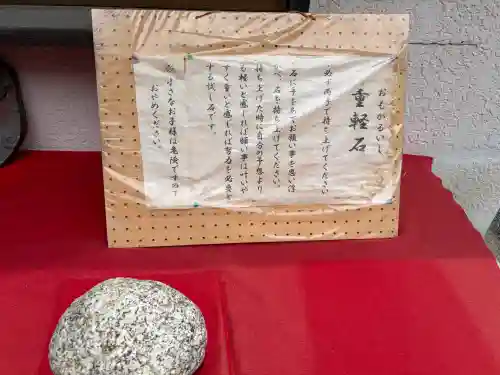 おもかるいし
重軽石
・必ず両手で持ち上げてください
・石に手をあてお願い事を思い浮
べ、石を持ち上げてください。
持ち上げた時に自分の予想より
も軽いと感じれば願い事は叶いや
すく重いと感じれば努力を必要と
する試し石です。
小さなお子様は危険ですので
おやめください。